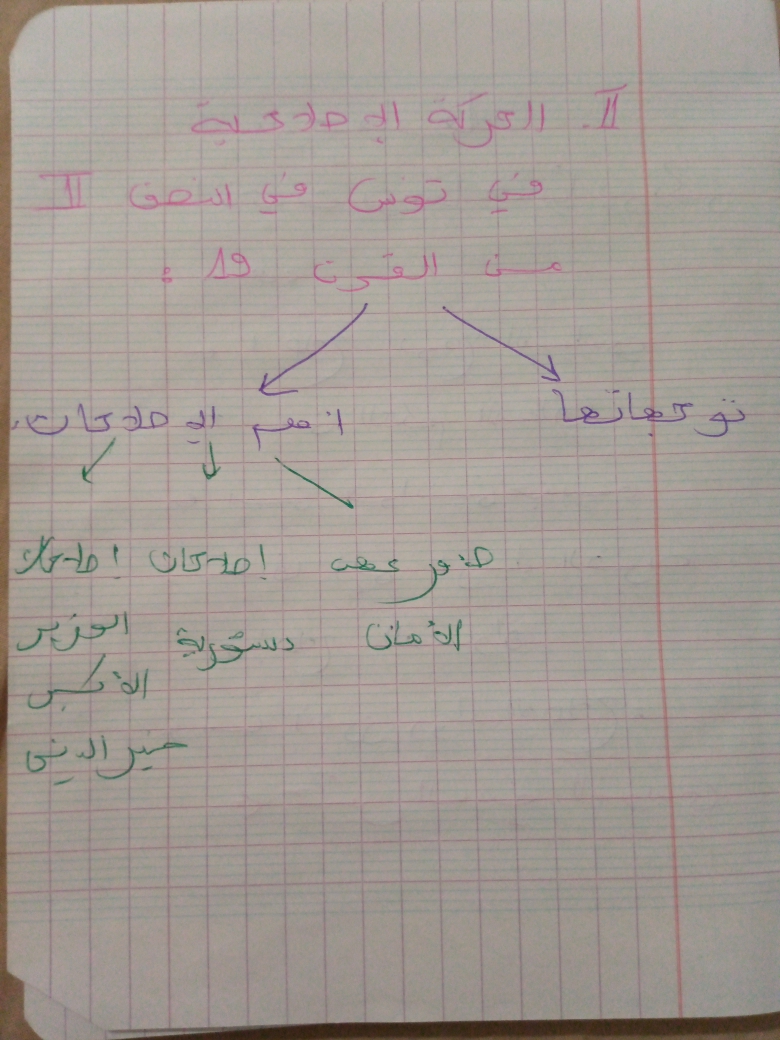 II. الحركة الإصلاحية
في تونس في النصف II
من القرن 19 :
توجهاتها
اهم الإصلاحات
صدور عهد
الأمان
إصلاحات
دستورية
إصلاحات
الوزير
الأكبر
خير الدين